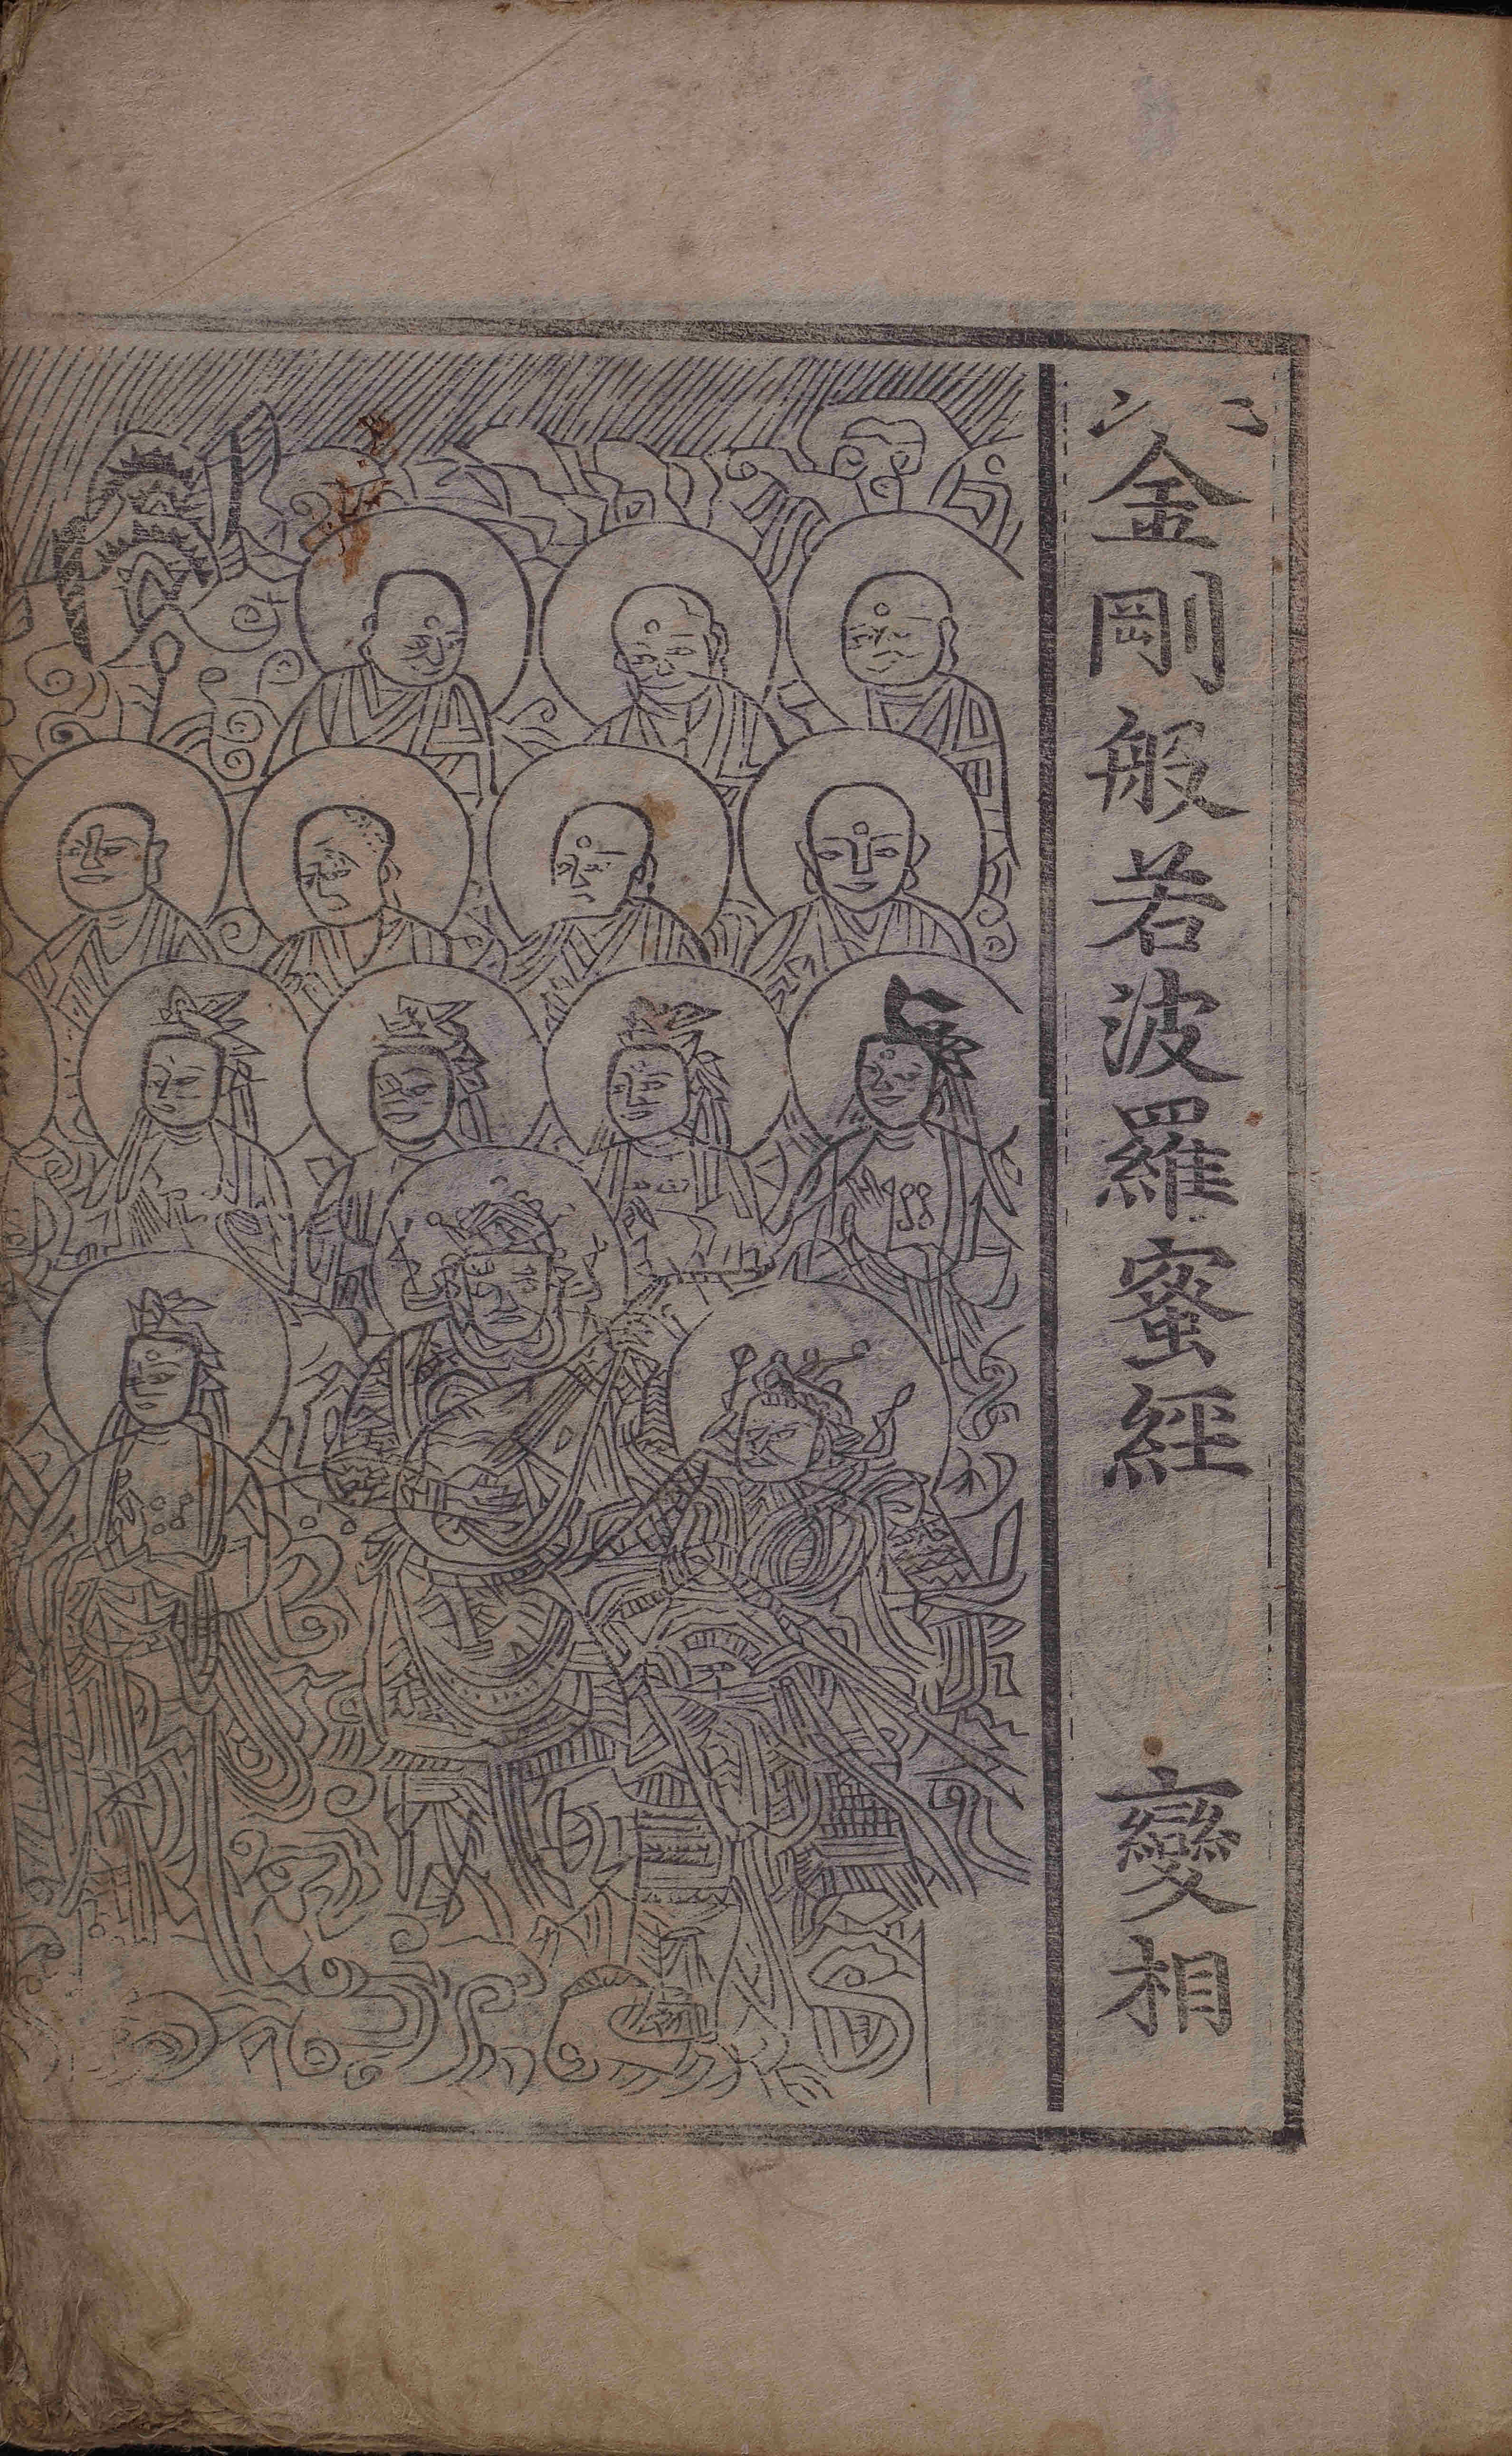 金剛般若波羅蜜經　變相